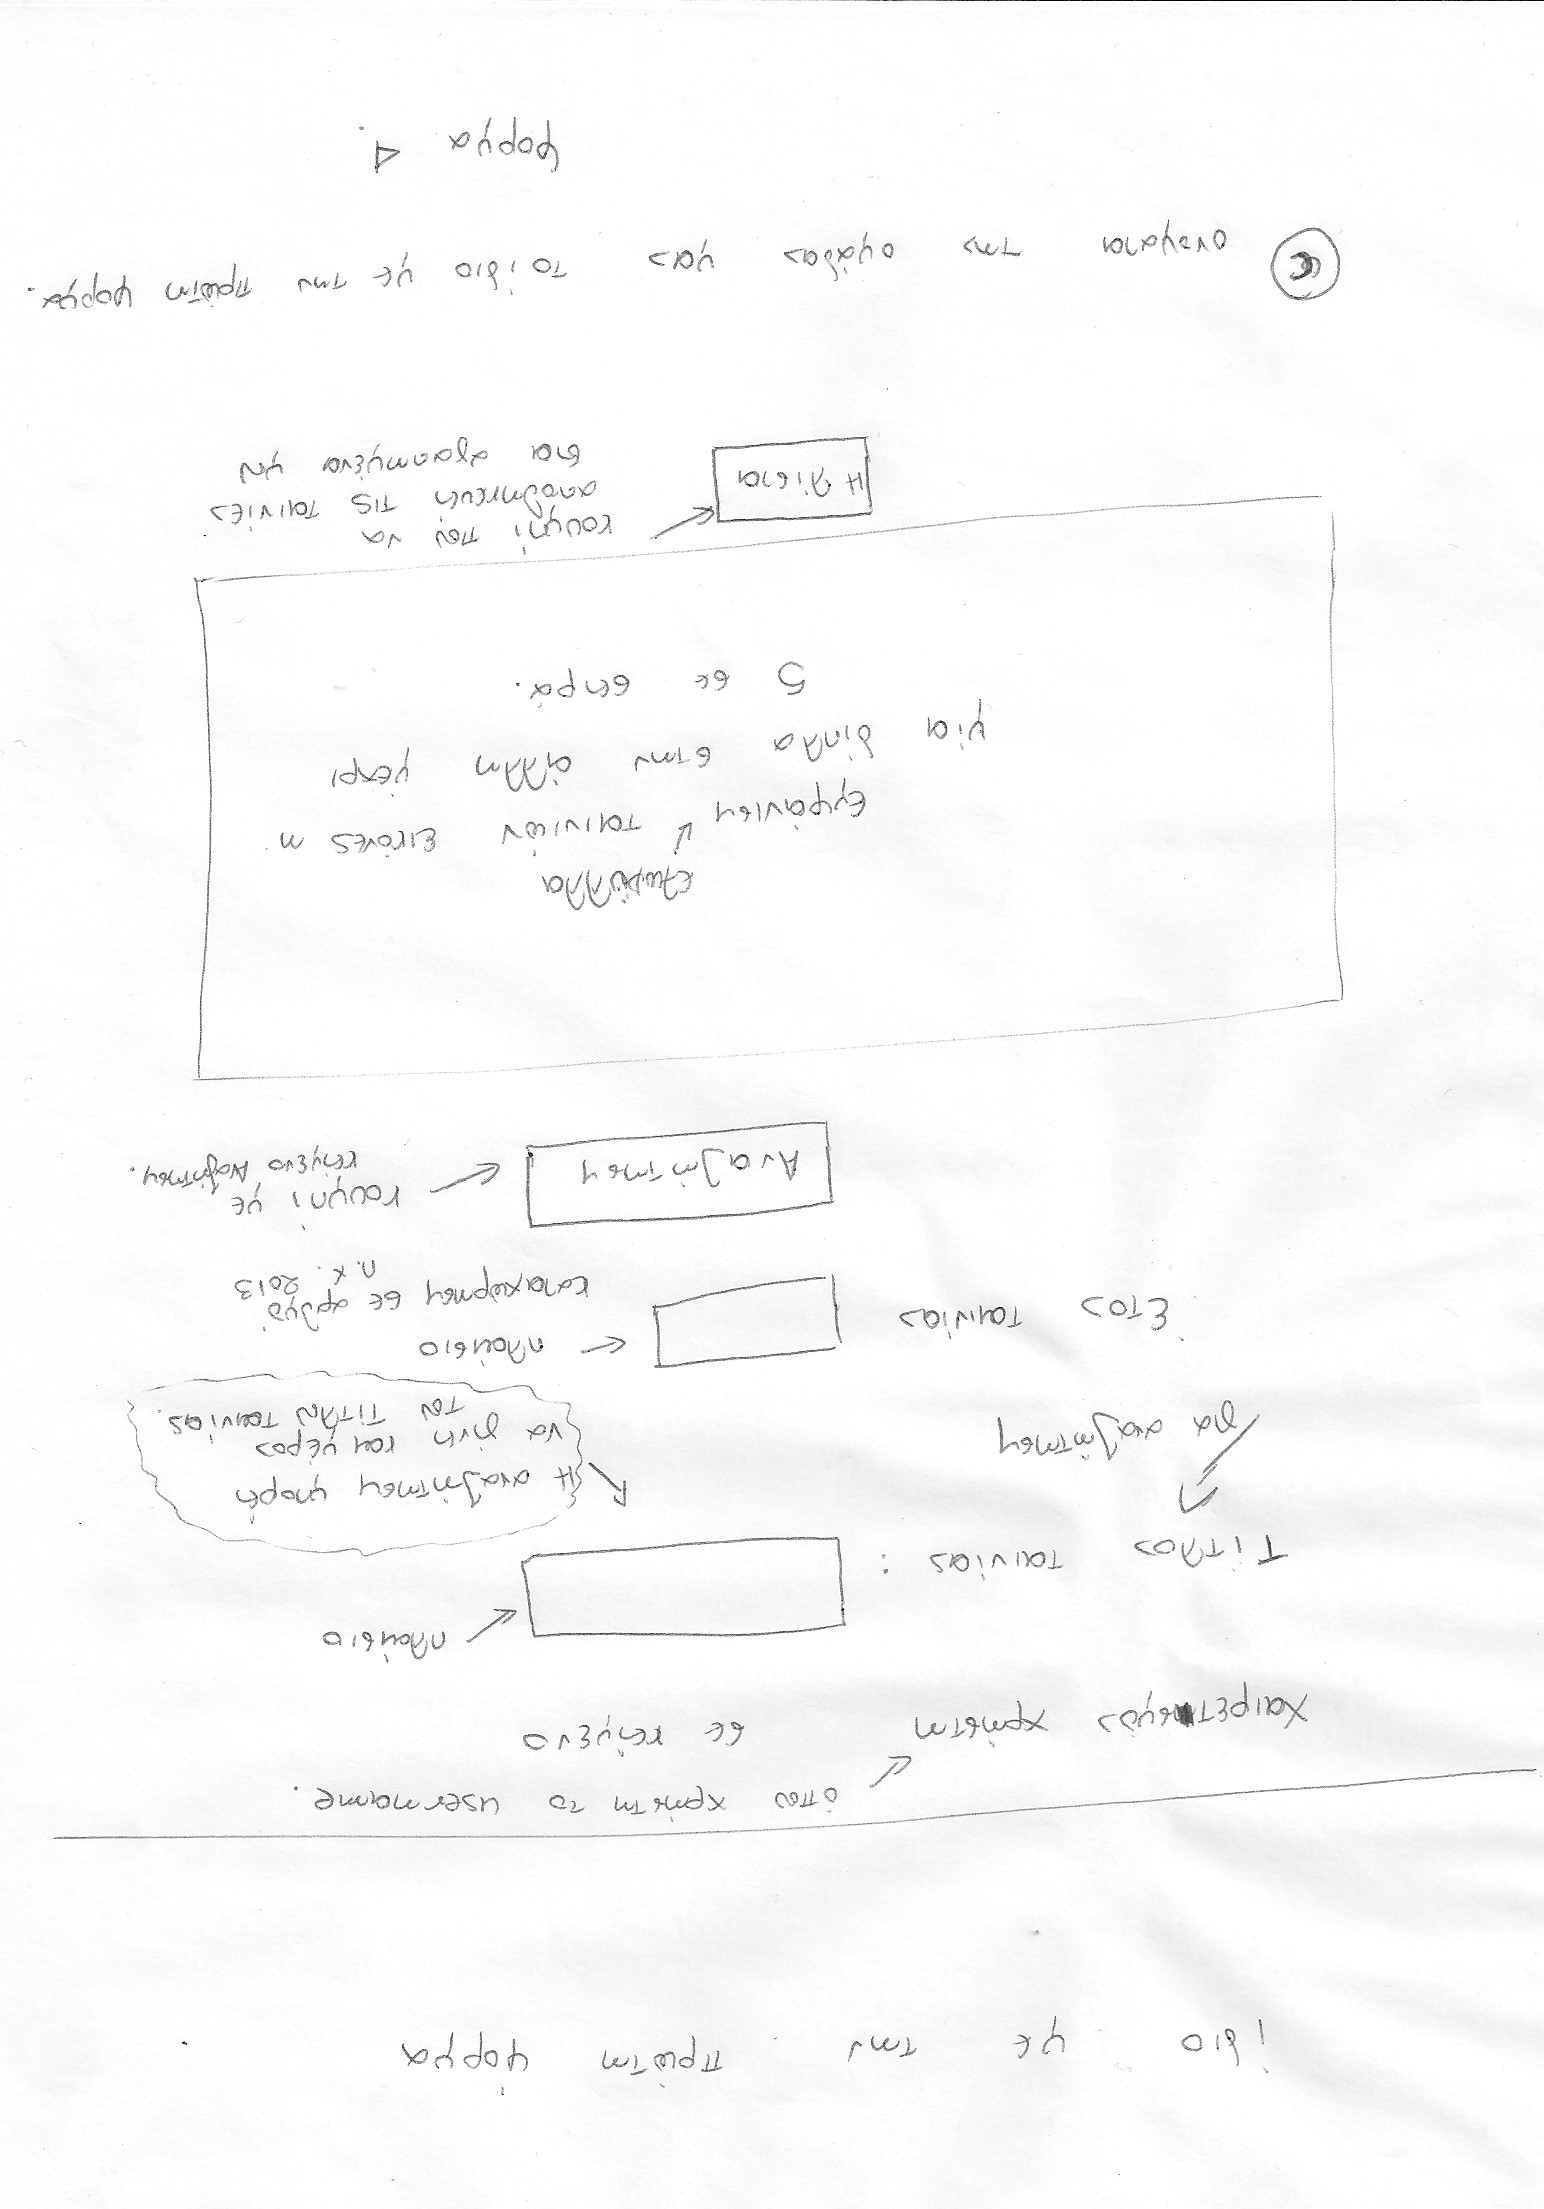 ίδιο με την πρώτη φόρμα
όπου χρήστη το username.
Χαιρετισμός χρήστη σε κείμενο
πλαίσιο
Τίτλος ταινίας :
για αναζήτηση
Η αναζήτηση μπορεί
να γίνει και μέρος
του τίτλου ταινίας.
Έτος ταινίας
πλαίσιο
καταχώρηση σε αριθμό
π.χ. 2013
Αναζήτηση
κουμπί με
κείμενο Αναζήτηση.
εξώφυλλα
εμφάνιση ταινιών εικόνες η
μία δίπλα στην άλλη μέχρι
5 σε σειρά.
Η λίστα
κουμπί που να
αποθηκεύει τις ταινίες
στα αγαπημένα μου
© ονόματα της ομάδας μας το ίδιο με την πρώτη φόρμα.
φορμα 4.